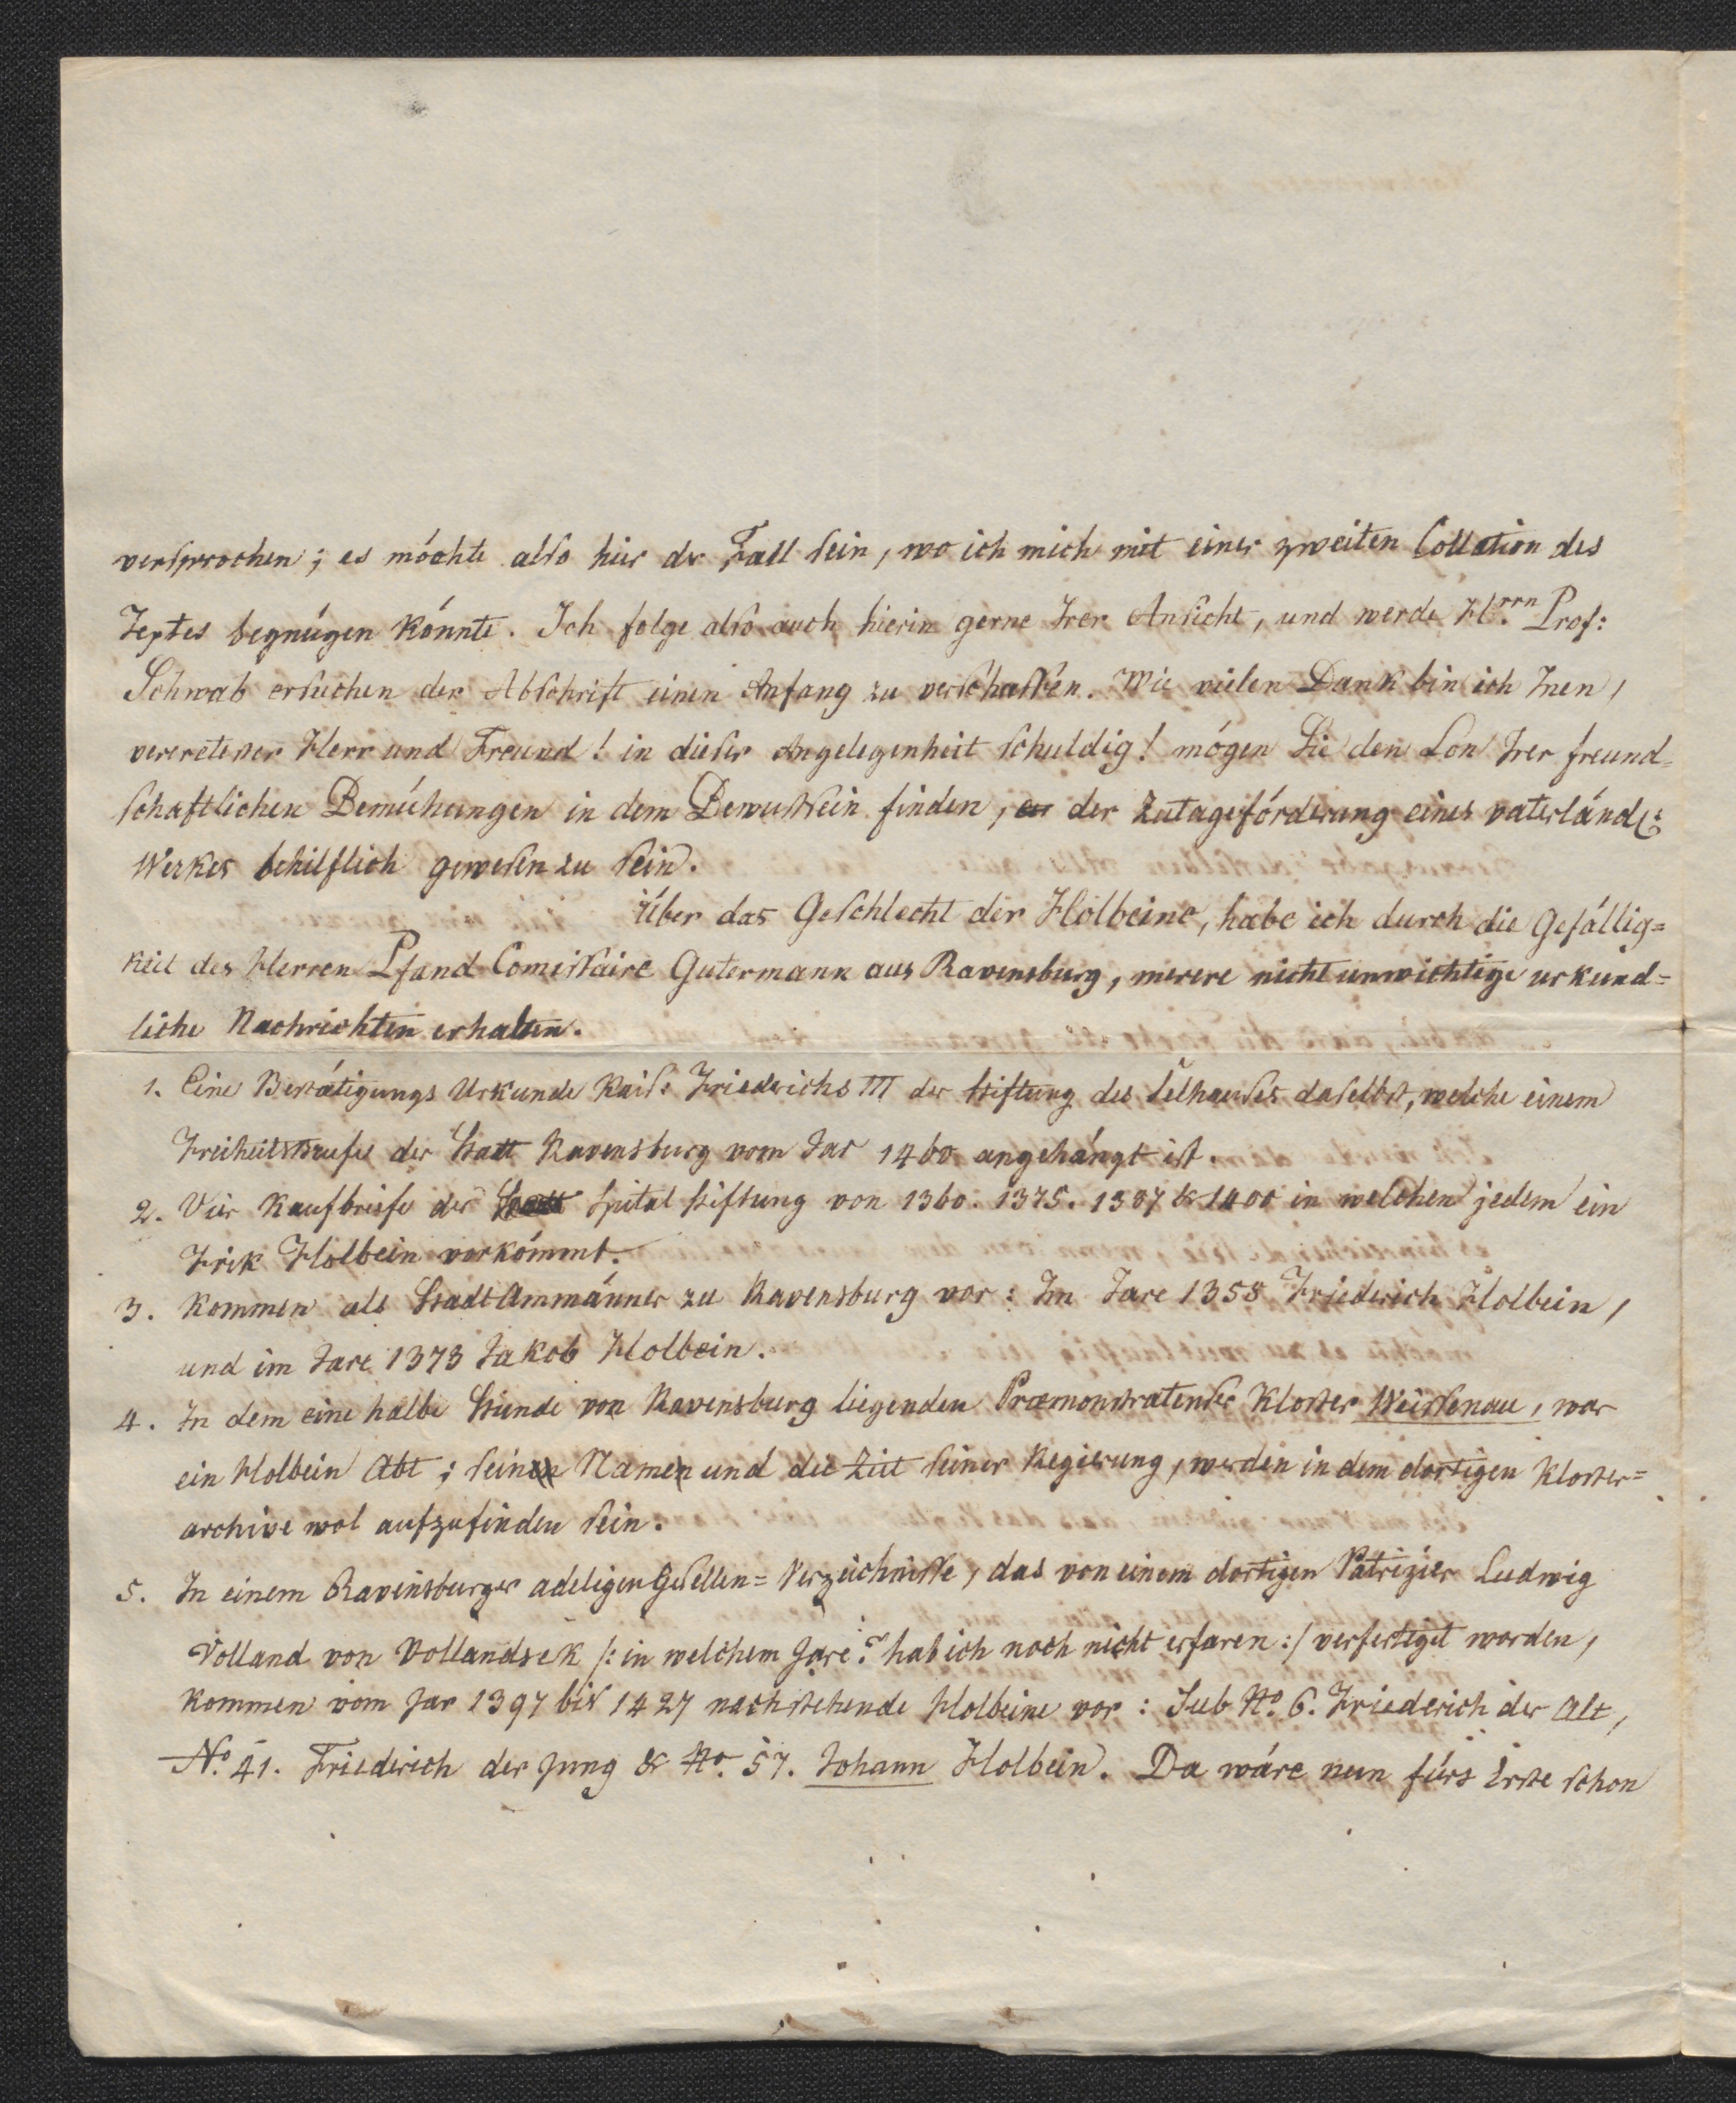 versprochen; es möchte also hier der Fall sein, wo ich mich mit einer zweiten Collation des
Textes begnügen könnte. Ich folge also auch hierin gerne Irer Ansicht, und werde H.rrn Prof:
Schwab ersuchen der Abschrift einen Anfang zu verschaffen. Wie vielen Dank bin ich Inen,
vereretester Herr und Freund! in dieser Angelegenheit schuldig! mögen Sie den Lon Irer freund-
schaftlichen Bemühungen in dem Bewustsein finden, der Zutageförderung eines vaterländ:
Werkes behilflich gewesen zu sein.
Über das Geschlecht der Holbeine, habe ich durch die Gefällig=
keit des Herren Pfand Comissaire Gutermann aus Ravensburg, merere nicht unwichtige urkund=
liche Nachrichten erhalten.
1. Eine Bestätigungs Urkunde Kais: Friederichs III der Stiftung des Selhauses daselbst, welche einem
Freiheitsbriefe der Statt Ravensburg vom Jar 1460 angehängt ist.
2. Vier Kaufbriefe der Statt Spital Stiftung von 1360. 1375. 1387 & 1400 in welchen jedem ein
Frik Holbein vorkömmt.
3. Kommen als Stadt Ammänner zu Ravensburg vor: Im Jare 1358 Friederich Holbein,
und im Jare 1373 Jakob Holbein.
4. In dem eine halbe Stunde von Ravensburg liegenden Præmonstratenser Kloster Weissenau, war
ein Holbein Abt; sein Name und die Zeit seiner Regierung, werden in dem dortigen Kloster=
archive wol aufzufinden sein.
5. In einem Ravensburger adeligen Gesellen= Verzeichnisse, das von einem dortigen Patrizier Ludwig
Volland von Vollandsek /: in welchem Jare? hab ich noch nicht erfaren :/ verfertiget worden,
kommen vom Jar 1397 bis 1427 nachstehende Holbeine vor: Sub No. 6. Friederich der Alt,
No. 41. Friederich der Jung & No. 57. Johann Holbein. Da wäre nun fürs Erste schon